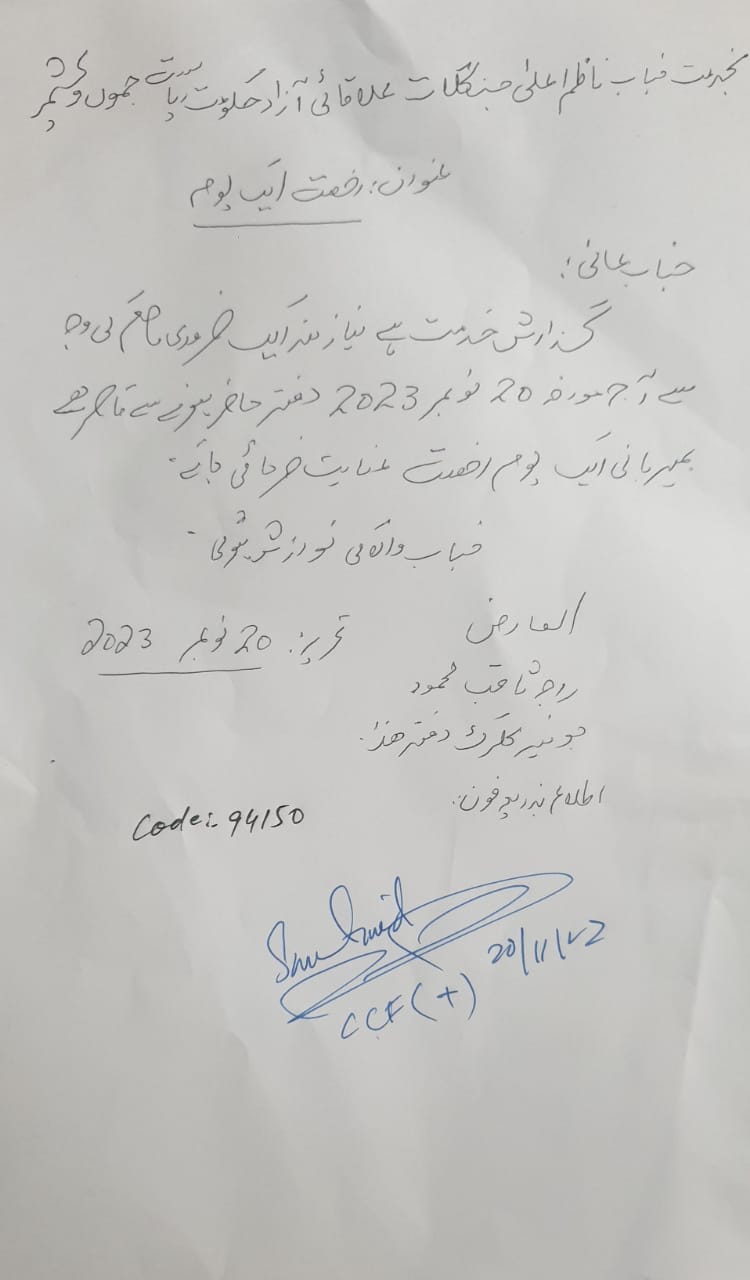 بخدمت جناب ناظم اعلیٰ جنگلات علاقائی آزاد حکومت ریاست جموں و کشمیر
عنوان: رخصت ایک یوم
جناب عالی:
گزارش خدمت ہے نیاز مند ایک ضروری کام کی وجہ
سے آج مورخہ 20 نومبر 2023 دفتر حاضر ہونے سے قاصر ہے
بمہربانی ایک یوم رخصت عنایت فرمائی جائے۔
جناب والا کی نوازش ہوگی۔
العارض
تحریر: 20 نومبر 2023
راجہ ثاقب محمود
جونیئر کلرک دفتر ھذا۔
اطلاع بذریعہ فون:
Code:- 94150
20/11/
CCF (T)